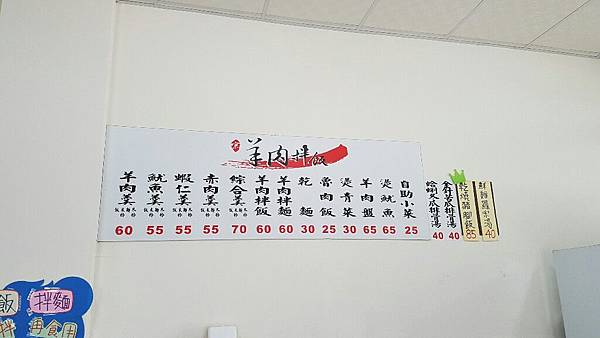 羊肉拌飯
羊肉羹 60
魷魚羹 55
蝦仁羹 55
赤肉羹 55
綜合羹 70
羊肉拌飯 60
羊肉拌麵 60
乾麵 30
魯肉飯 25
燙青菜 30
羊肉盤 65
燙魷魚 65
自助小菜 25
蛤蜊大瓜排骨湯 40
金針苦瓜排骨湯 40
乾燒豬腳飯 85
40
飯 拌麵
拌 再食用